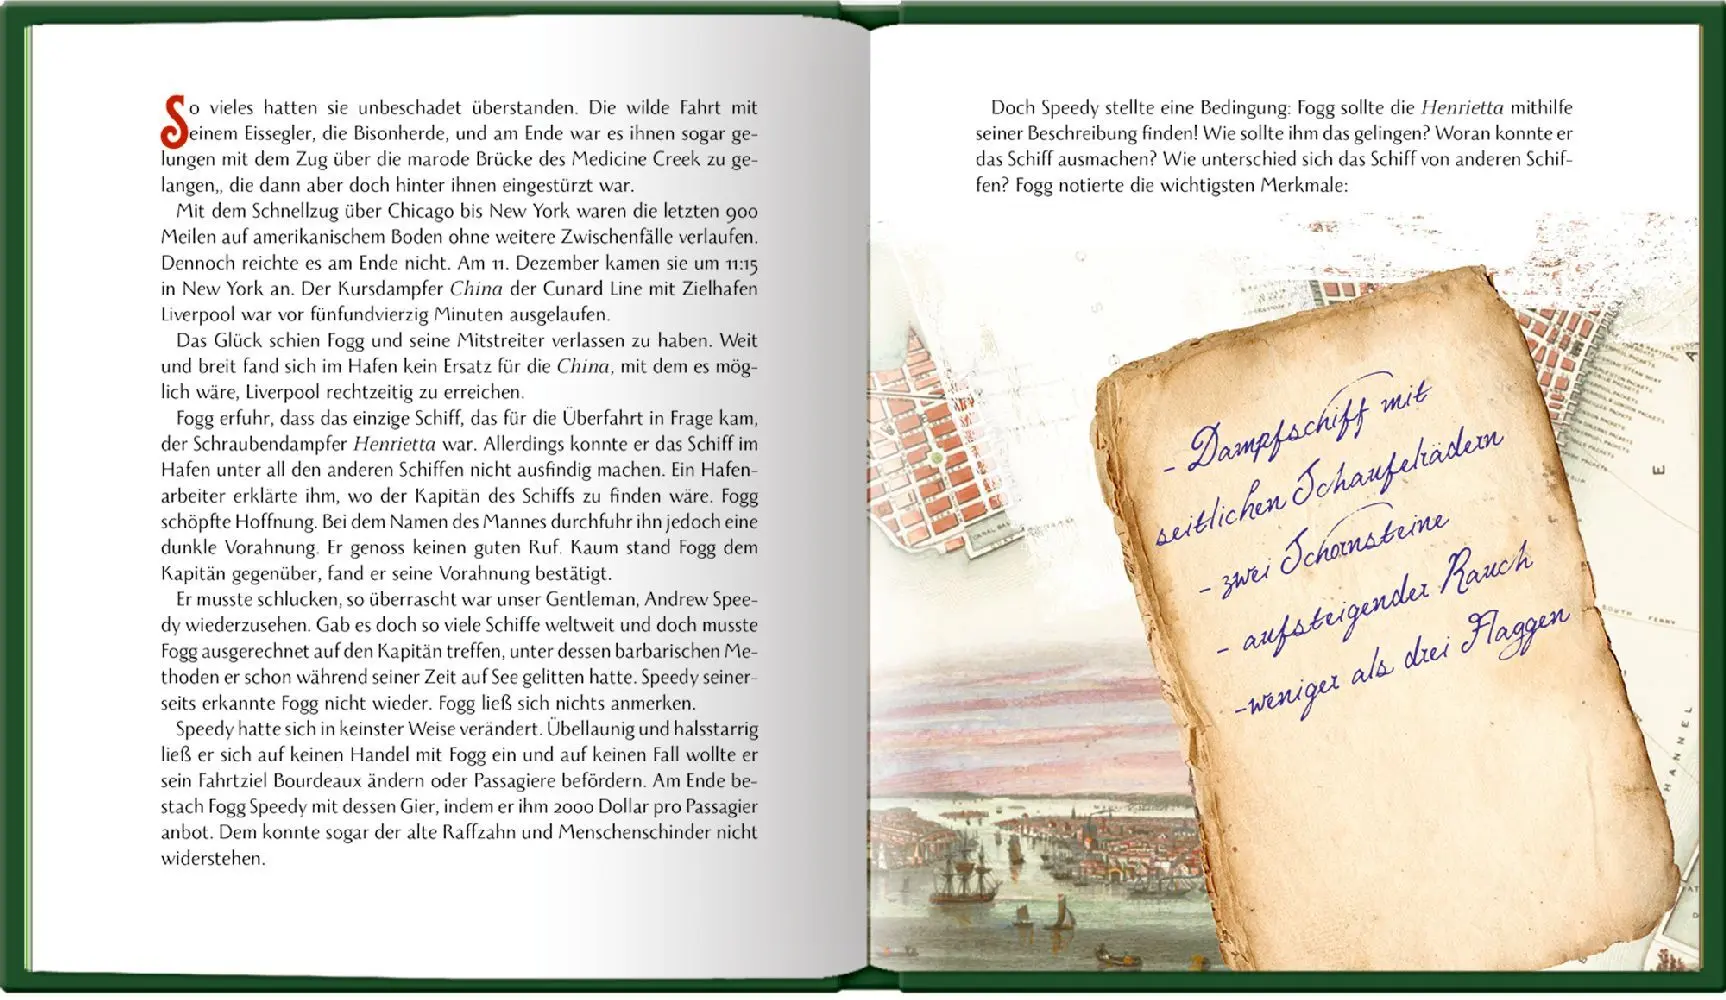 So vieles hatten sie unbeschadet überstanden. Die wilde Fahrt mit
einem Eissegler, die Bisonherde, und am Ende war es ihnen sogar ge-
lungen mit dem Zug über die marode Brücke des Medicine Creek zu ge-
langen,, die dann aber doch hinter ihnen eingestürzt war.
Mit dem Schnellzug über Chicago bis New York waren die letzten 900
Meilen auf amerikanischem Boden ohne weitere Zwischenfälle verlaufen.
Dennoch reichte es am Ende nicht. Am 11. Dezember kamen sie um 11:15
in New York an. Der Kursdampfer China der Cunard Line mit Zielhafen
Liverpool war vor fünfundvierzig Minuten ausgelaufen.
Das Glück schien Fogg und seine Mitstreiter verlassen zu haben. Weit
und breit fand sich im Hafen kein Ersatz für die China, mit dem es mög-
lich wäre, Liverpool rechtzeitig zu erreichen.
Fogg erfuhr, dass das einzige Schiff, das für die Überfahrt in Frage kam,
der Schraubendampfer Henrietta war. Allerdings konnte er das Schiff im
Hafen unter all den anderen Schiffen nicht ausfindig machen. Ein Hafen-
arbeiter erklärte ihm, wo der Kapitän des Schiffs zu finden wäre. Fogg
schöpfte Hoffnung. Bei dem Namen des Mannes durchfuhr ihn jedoch eine
dunkle Vorahnung. Er genoss keinen guten Ruf. Kaum stand Fogg dem
Kapitän gegenüber, fand er seine Vorahnung bestätigt.
Er musste schlucken, so überrascht war unser Gentleman, Andrew Spee-
dy wiederzusehen. Gab es doch so viele Schiffe weltweit und doch musste
Fogg ausgerechnet auf den Kapitän treffen, unter dessen barbarischen Me-
thoden er schon während seiner Zeit auf See gelitten hatte. Speedy seiner-
seits erkannte Fogg nicht wieder. Fogg ließ sich nichts anmerken.
Speedy hatte sich in keinster Weise verändert. Übellaunig und halsstarrig
ließ er sich auf keinen Handel mit Fogg ein und auf keinen Fall wollte er
sein Fahrtziel Bourdeaux ändern oder Passagiere befördern. Am Ende be-
stach Fogg Speedy mit dessen Gier, indem er ihm 2000 Dollar pro Passagier
anbot. Dem konnte sogar der alte Raffzahn und Menschenschinder nicht
widerstehen.
Doch Speedy stellte eine Bedingung: Fogg sollte die Henrietta mithilfe
seiner Beschreibung finden! Wie sollte ihm das gelingen? Woran konnte er
das Schiff ausmachen? Wie unterschied sich das Schiff von anderen Schif-
fen? Fogg notierte die wichtigsten Merkmale:
- Dampfschiff mit
seitlichen Schaufelrädern
- zwei Schornsteine
- aufsteigender Rauch
- weniger als drei Flaggen